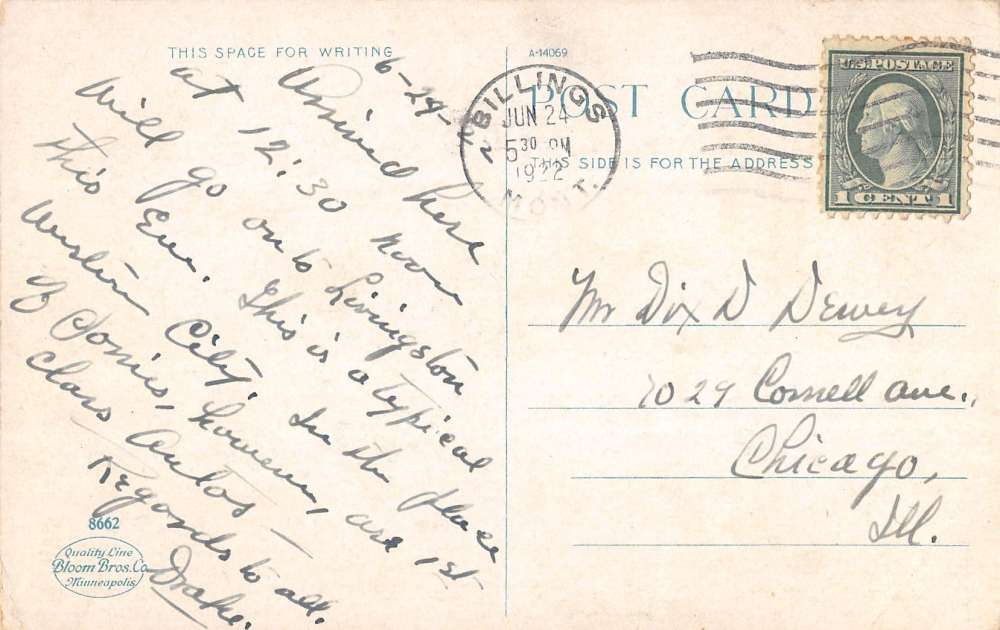 THIS SPACE FOR WRITING
6-24-
Arrived here
at 12:30 noon
Will go on to Livingston
this Eve. This is a typical
Western City. In the place
of Ponies, however, are 1st
class Autos -
Regards to all.
Drake.
8662
Quality Line
Bloom Bros. Co
Minneapolis
A-14069
POST CARD
THIS SIDE IS FOR THE ADDRESS
BILLINGS
JUN 24
5 30 PM
1922
MONT.
U.S. POSTAGE
1 CENT 1
Mr Dix D Dewey
7029 Cornell ave.,
Chicago,
Ill.